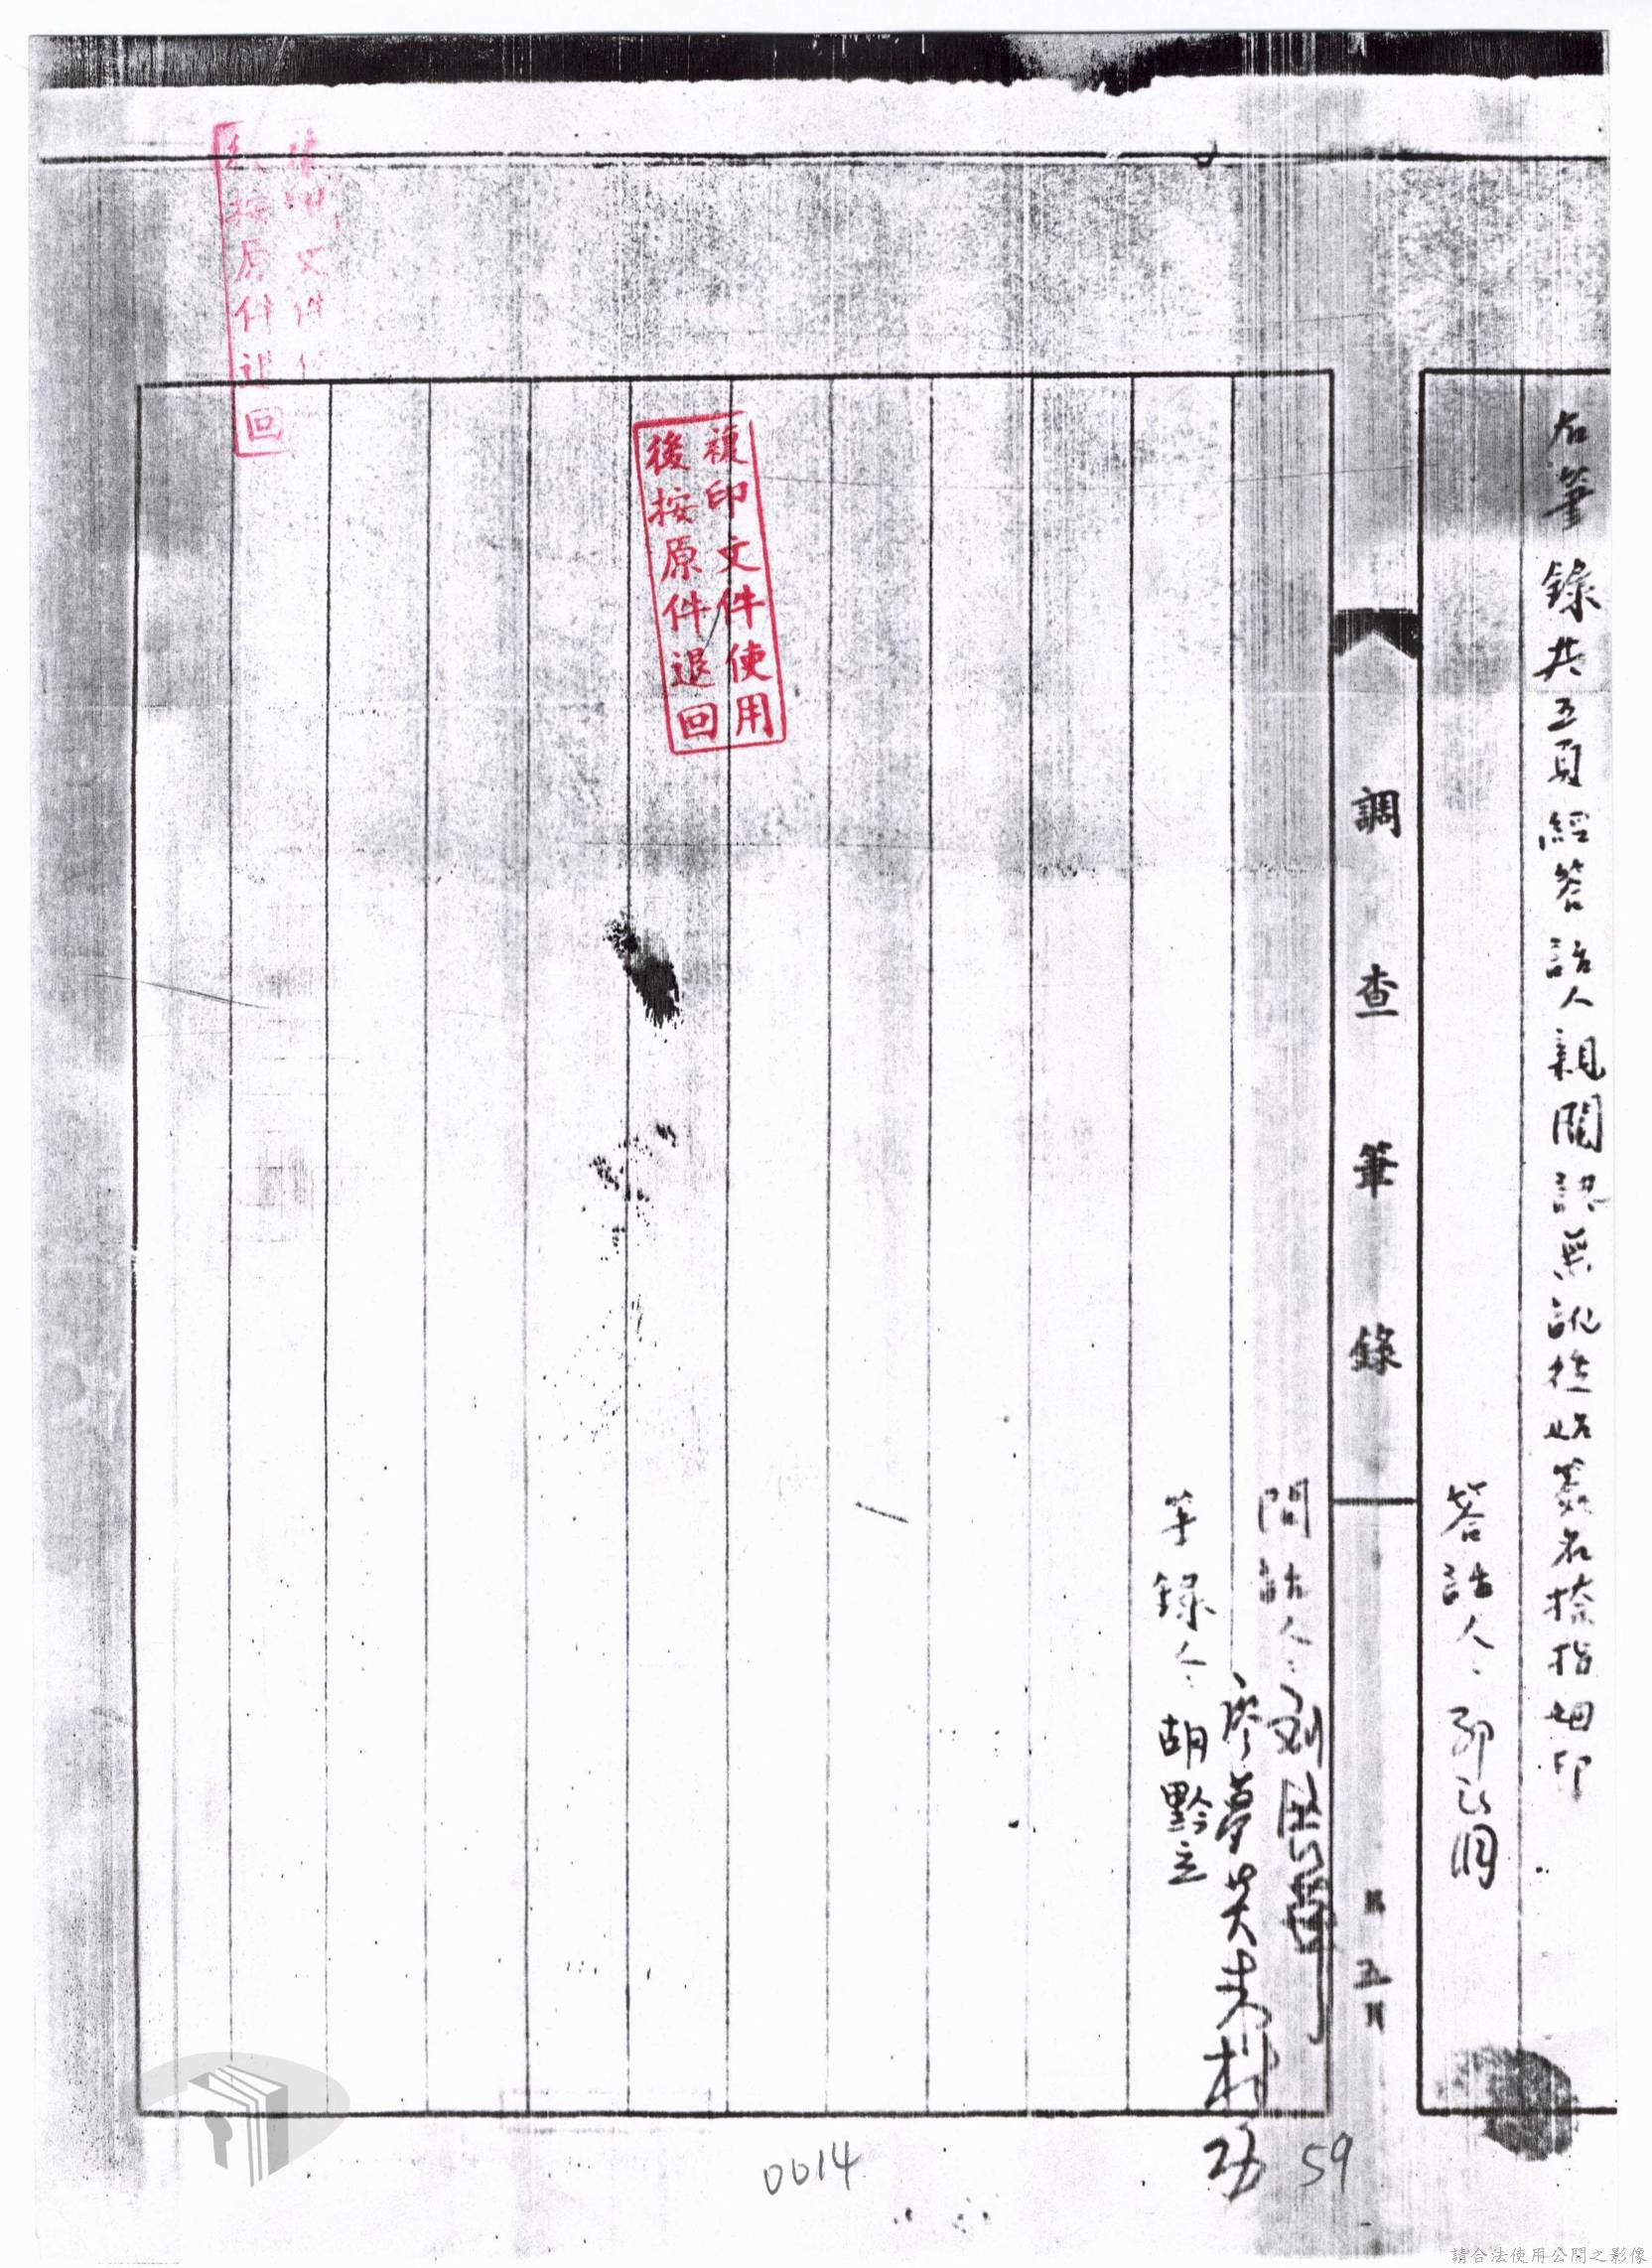 右筆錄共五頁經答話人親閱認無訛後始簽名捺指姆印
答話人：
調查筆錄
第五頁
問話人：劉
廖夢
筆錄人：胡黔立
複印文件使用
後按原件退回
按原件退回
文件
0014
59
請合法使用公開之影像